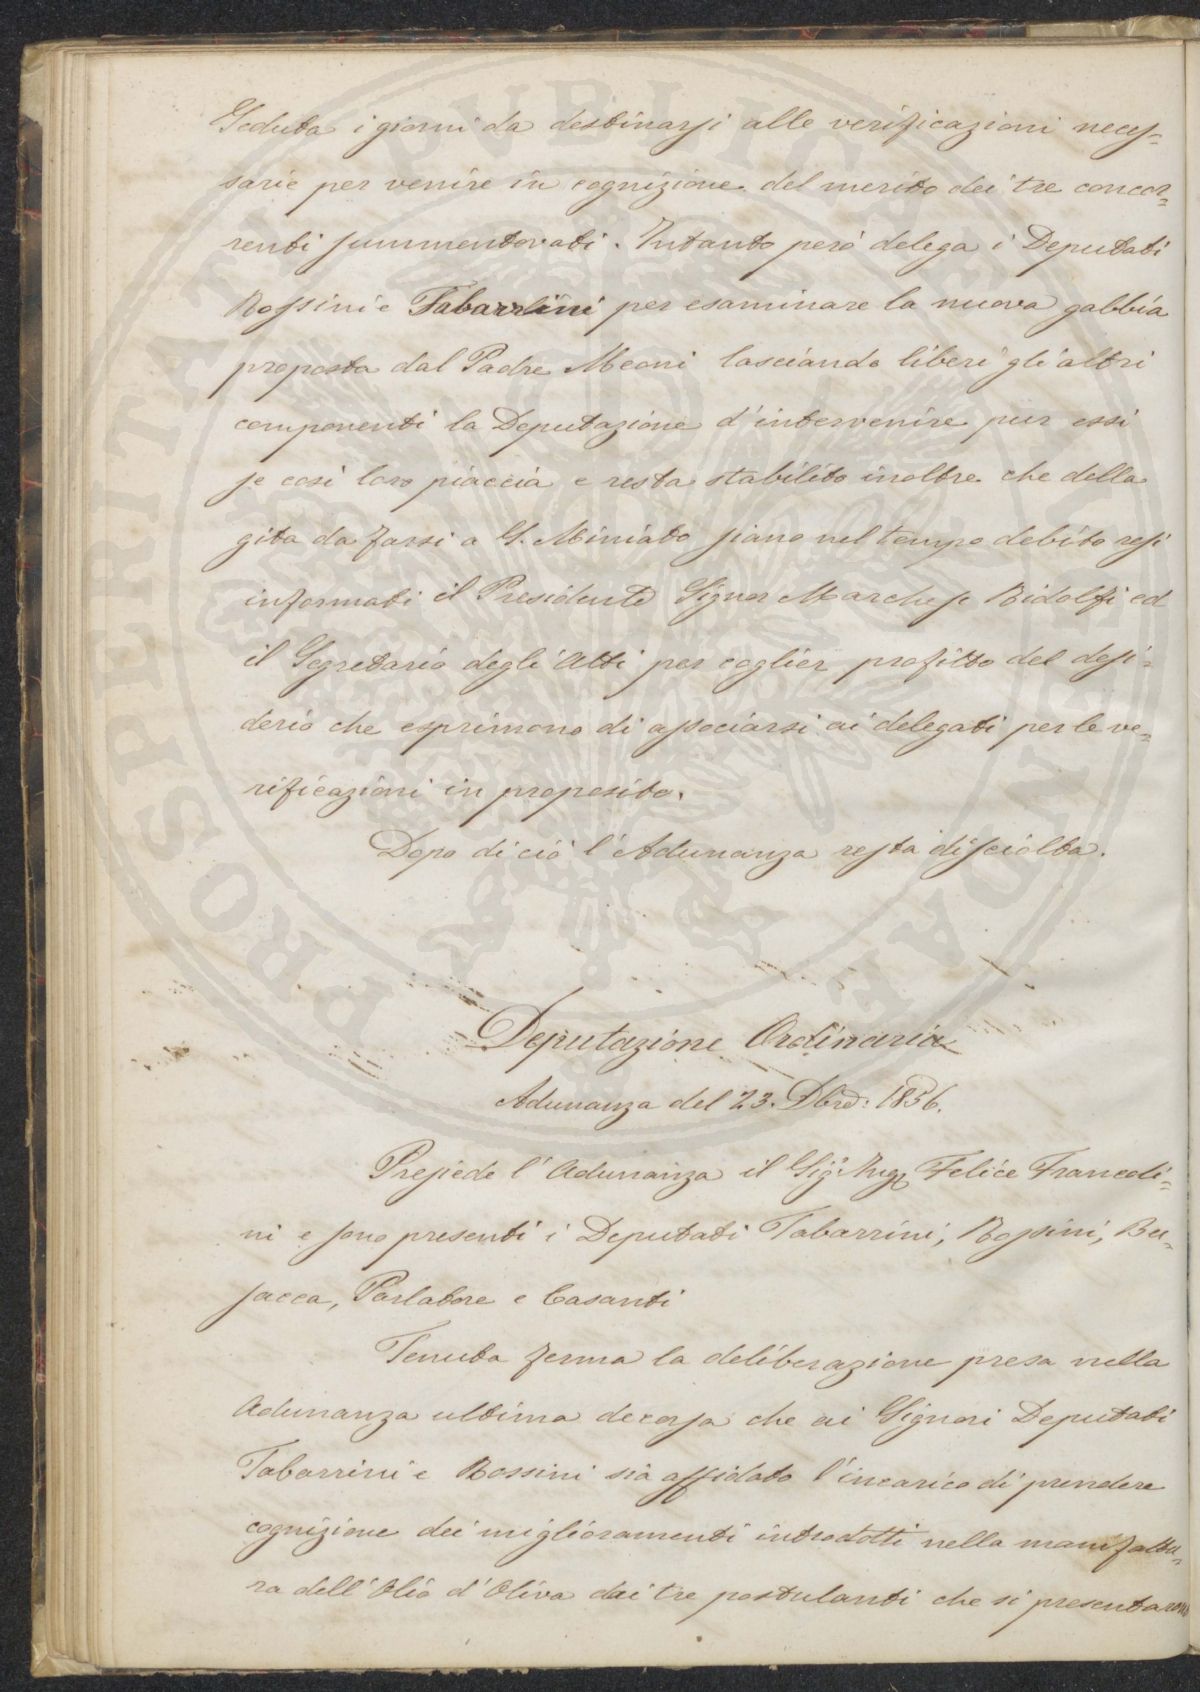 Seduta i giorni da destinarsi alle verificazioni neces=
sarie per venire in cognizione del merito dei tre concor=
renti summentovati. Intanto però delega i Deputati
Rossini e Tabarrini per esaminare la nuova gabbia
proposta dal Padre Meoni lasciando liberi gli altri
componenti la Deputazione d'intervenire pur essi
se così loro piaccia e resta stabilito inoltre che della
gita da farsi a S. Miniato siano nel tempo debito resi
informati il Presidente Signor Marchese Ridolfi ed
il Segretario degli Atti per coglier profitto del desi=
derio che esprimono di associarsi ai delegati per le ve=
rificazioni in proposito.
Dopo di ciò l'Adunanza resta disciolta.
Deputazione Ordinaria
Adunanza del 23. Dbre: 1856.
Presiede l'Adunanza il Sigr. Ing Felice Francoli=
ni e sono presenti i Deputati Tabarrini, Rossini, Bu=
sacca, Parlatore e Casanti
Tenuta ferma la deliberazione presa nella
Adunanza ultima decorsa che ai Signori Deputati
Tabarrini e Rossini sia affidato l'incarico di prendere
cognizione dei miglioramenti introdotti nella manifattu=
ra dell'Olio d'Oliva dai tre postulanti che si presentarono
PROSPERITATI PVBLICAE AVGENDAE